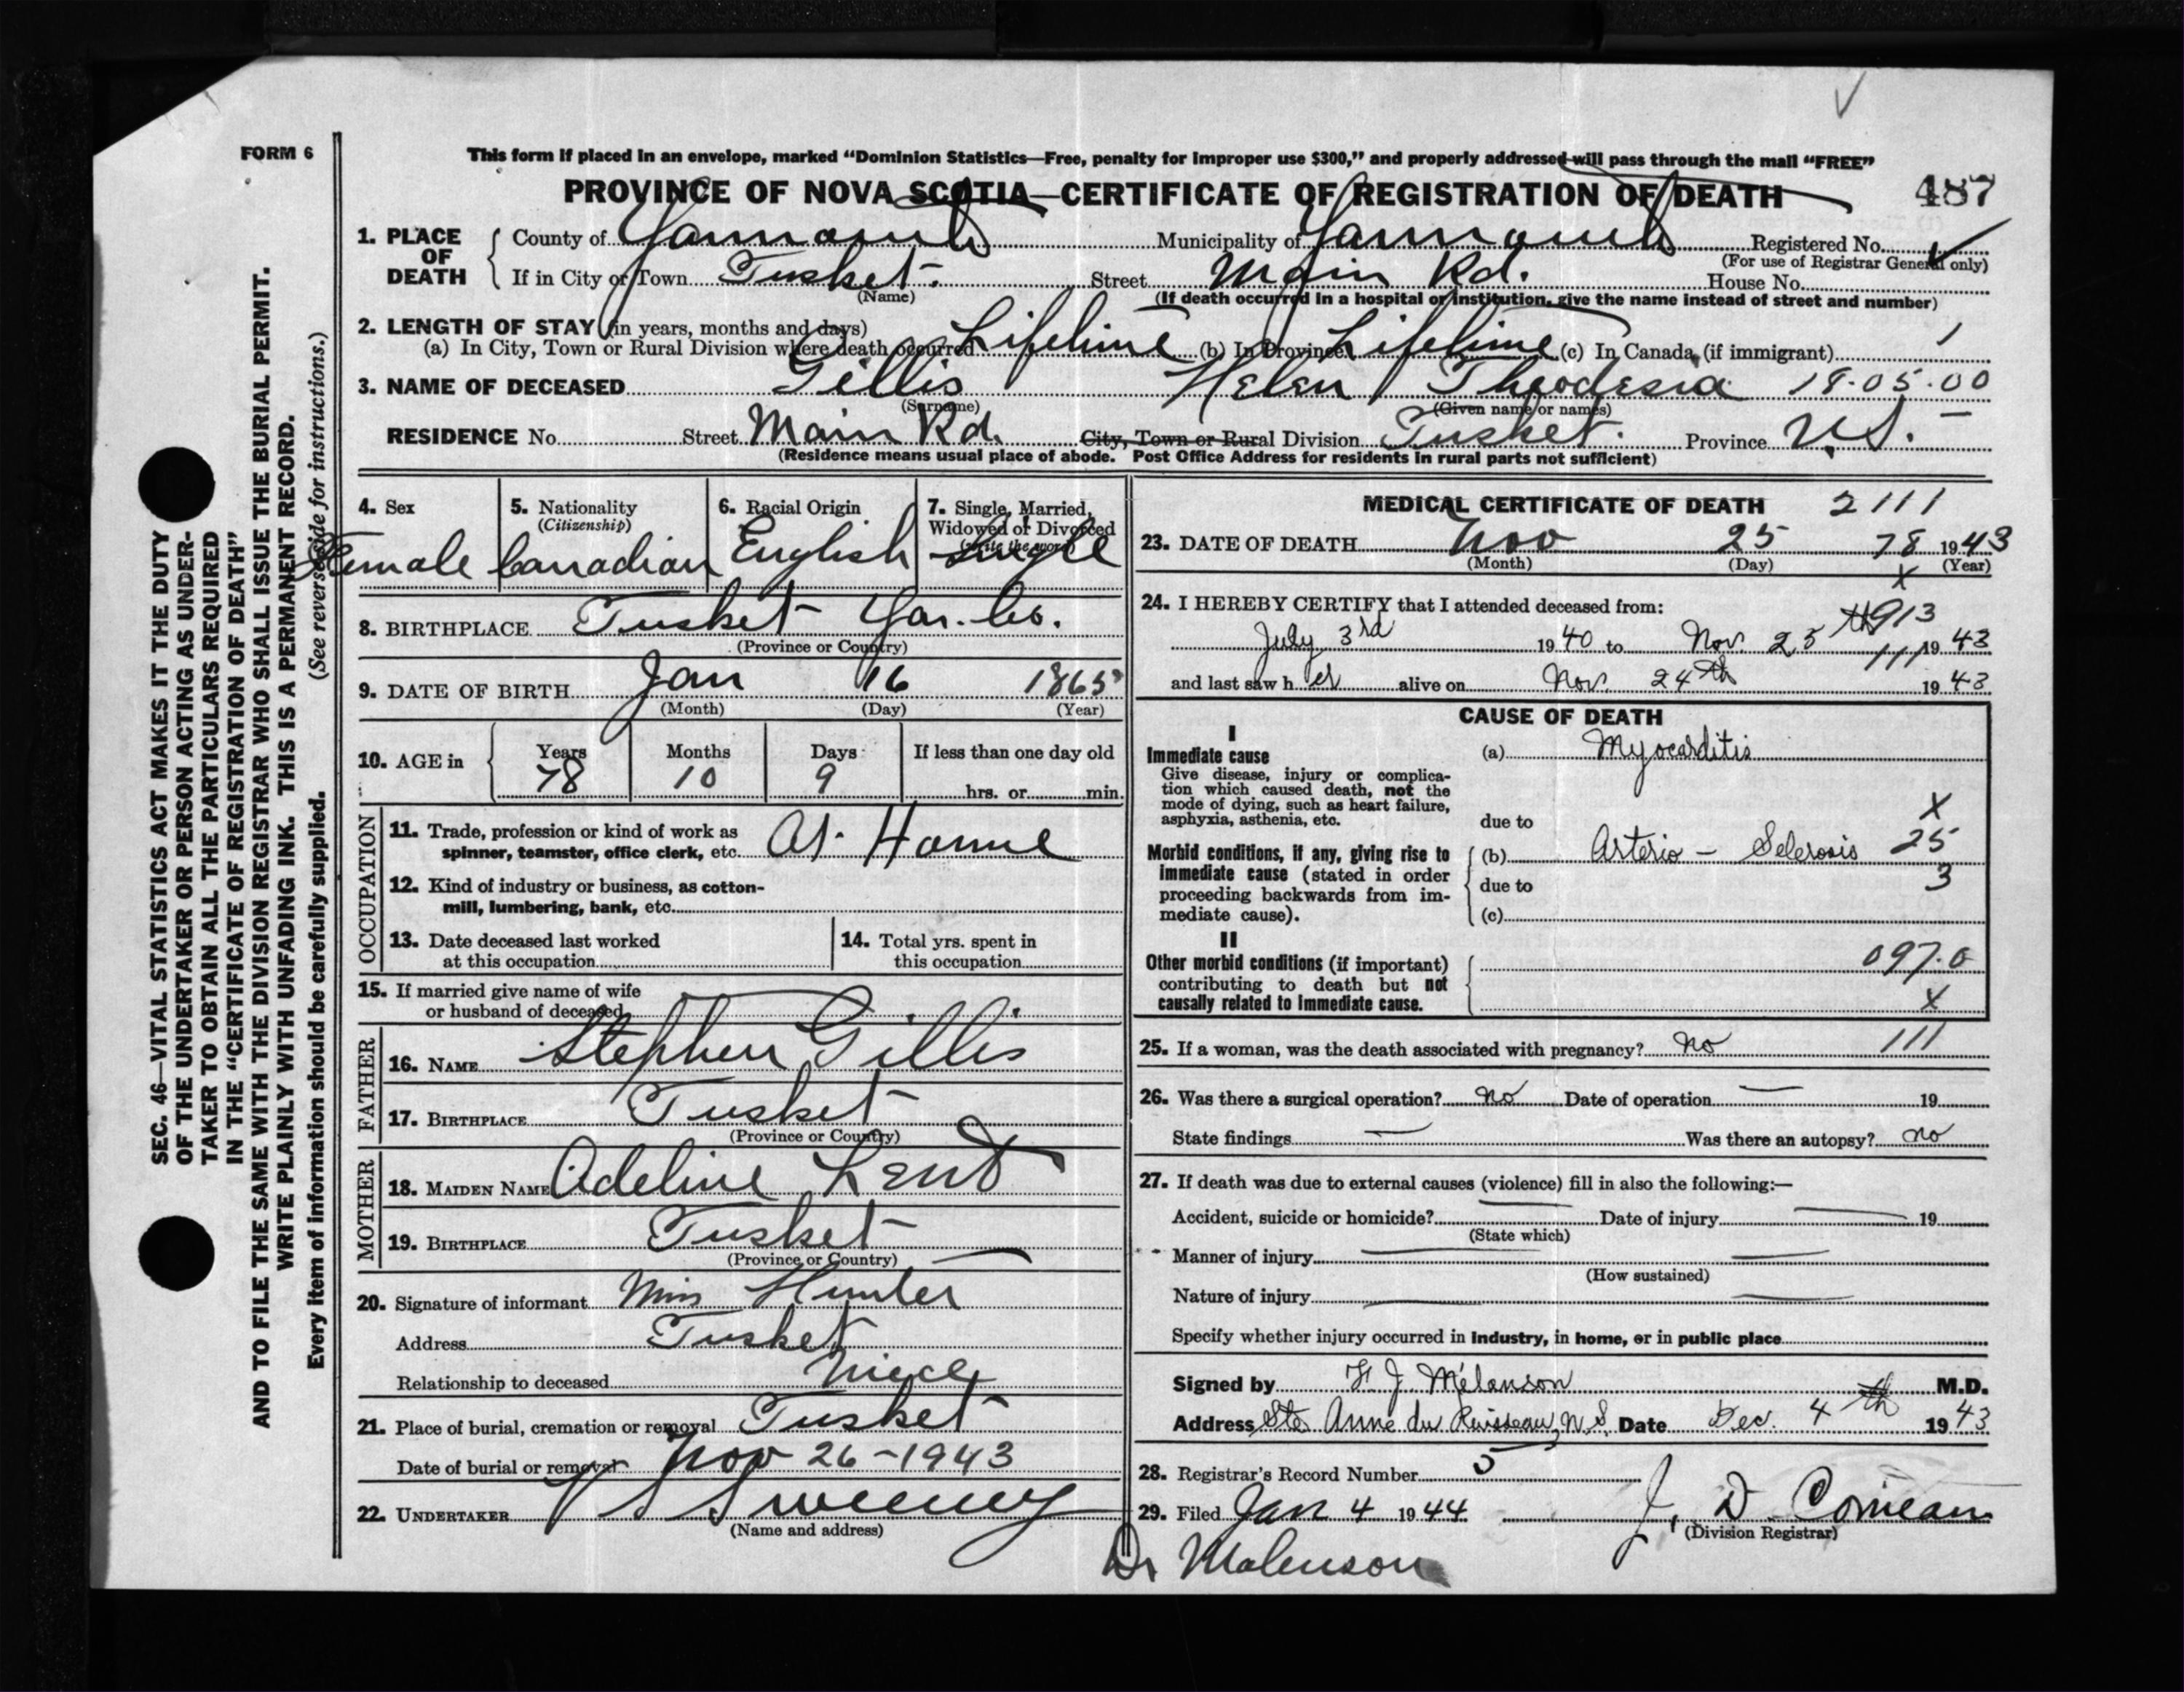 FORM 6
This form if placed in an envelope, marked “Dominion Statistics—Free, penalty for improper use $300,” and properly addressed will pass through the mail “FREE”
PROVINCE OF NOVA SCOTIA—CERTIFICATE OF REGISTRATION OF DEATH
487
1. PLACE OF DEATH
County of Yarmouth Municipality of Yarmouth Registered No.
(For use of Registrar General only)
If in City or Town Tusket. Street Main Rd. House No.
(Name) (If death occurred in a hospital or institution, give the name instead of street and number)
2. LENGTH OF STAY (in years, months and days)
(a) In City, Town or Rural Division where death occurred Lifetime (b) In Province Lifetime (c) In Canada (if immigrant) 1
3. NAME OF DECEASED Gillis Helen Theodesia 18.05.00
(Surname) (Given name or names)
RESIDENCE No. Street Main Rd. City, Town or Rural Division Tusket. Province N.S.
(Residence means usual place of abode. Post Office Address for residents in rural parts not sufficient)
4. Sex
Female
5. Nationality
(Citizenship)
Canadian
6. Racial Origin
English
7. Single, Married,
Widowed or Divorced
(write the word)
Single
8. BIRTHPLACE Tusket Yar. Co.
(Province or Country)
9. DATE OF BIRTH Jan 16 1865
(Month) (Day) (Year)
10. AGE in
Years Months Days If less than one day old
78 10 9 hrs. or min.
OCCUPATION
11. Trade, profession or kind of work as
spinner, teamster, office clerk, etc. At Home
12. Kind of industry or business, as cotton-
mill, lumbering, bank, etc.
13. Date deceased last worked
at this occupation
14. Total yrs. spent in
this occupation
15. If married give name of wife
or husband of deceased
FATHER
16. NAME Stephen Gillis
17. BIRTHPLACE Tusket
(Province or Country)
MOTHER
18. MAIDEN NAME Adeline Lent
19. BIRTHPLACE Tusket
(Province or Country)
20. Signature of informant Miss Hunter
Address Tusket
Relationship to deceased Niece
21. Place of burial, cremation or removal Tusket
Date of burial or removal Nov 26-1943
22. UNDERTAKER V S Sweeney
(Name and address)
MEDICAL CERTIFICATE OF DEATH 2111
23. DATE OF DEATH Nov 25 78 1943
(Month) (Day) (Year)
X
24. I HEREBY CERTIFY that I attended deceased from:
913
July 3rd 1940 to Nov. 25th 1943
111
and last saw her alive on Nov. 24th 1943
CAUSE OF DEATH
I
Immediate cause
Give disease, injury or complica-
tion which caused death, not the
mode of dying, such as heart failure,
asphyxia, asthenia, etc.
(a) Myocarditis
X
due to
Morbid conditions, if any, giving rise to
immediate cause (stated in order
proceeding backwards from im-
mediate cause).
(b) Arterio - Sclerosis 25
due to 3
(c)
II
Other morbid conditions (if important)
contributing to death but not
causally related to immediate cause.
097.0
X
25. If a woman, was the death associated with pregnancy? No 111
26. Was there a surgical operation? No Date of operation — 19
State findings — Was there an autopsy? No
27. If death was due to external causes (violence) fill in also the following:—
Accident, suicide or homicide? Date of injury 19
(State which)
Manner of injury
(How sustained)
Nature of injury
Specify whether injury occurred in industry, in home, or in public place
Signed by F. J. Mélanson M.D.
Address Ste Anne du Ruisseau, N.S. Date Dec. 4th 1943
28. Registrar's Record Number 5
29. Filed Jan 4 1944 J. D. Comeau
(Division Registrar)
Dr Malenson
SEC. 46—VITAL STATISTICS ACT MAKES IT THE DUTY
OF THE UNDERTAKER OR PERSON ACTING AS UNDER-
TAKER TO OBTAIN ALL THE PARTICULARS REQUIRED
IN THE “CERTIFICATE OF REGISTRATION OF DEATH”
AND TO FILE THE SAME WITH THE DIVISION REGISTRAR WHO SHALL ISSUE THE BURIAL PERMIT.
WRITE PLAINLY WITH UNFADING INK. THIS IS A PERMANENT RECORD.
Every item of information should be carefully supplied. (See reverse side for instructions.)